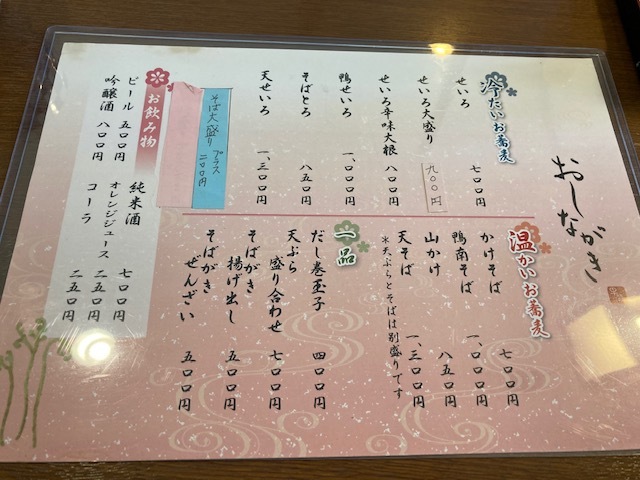 おしながき
冷たいお蕎麦
せいろ 七〇〇円
せいろ大盛り 九〇〇円
せいろ辛味大根 八〇〇円
鴨せいろ 一、〇〇〇円
そばとろ 八五〇円
天せいろ 一、三〇〇円
そば大盛り プラス 二〇〇円
温かいお蕎麦
かけそば 七〇〇円
鴨南そば 一、〇〇〇円
山かけ 八五〇円
天そば 一、三〇〇円
＊天ぷらとそばは別盛りです
一品
だし巻玉子 四〇〇円
天ぷら 盛り合わせ 七〇〇円
そばがき 揚げ出し 五〇〇円
そばがき ぜんざい 五〇〇円
お飲み物
ビール 五〇〇円
吟醸酒 八〇〇円
純米酒 七〇〇円
オレンジジュース 二五〇円
コーラ 二五〇円